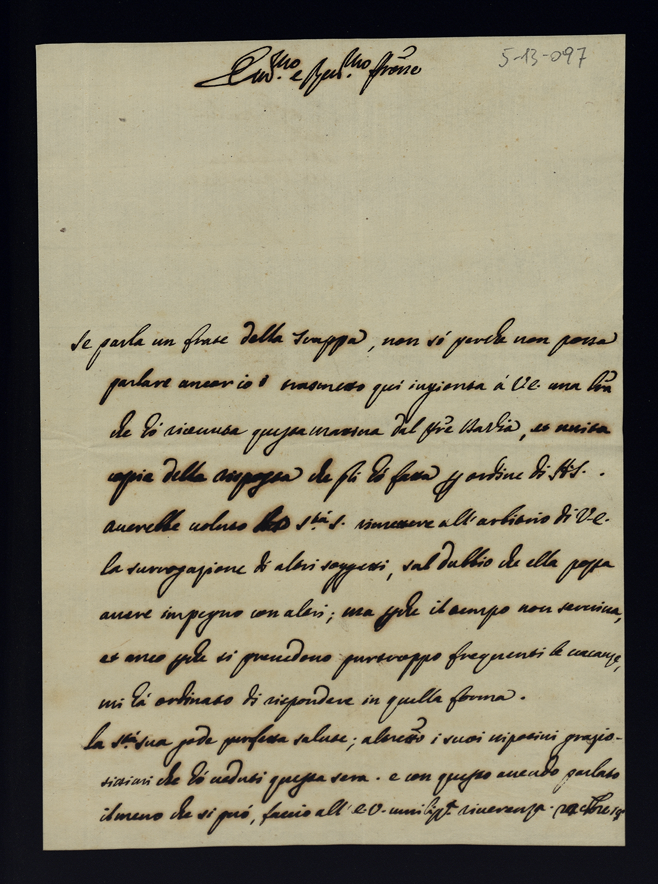 5-13-097
Em.mo e Rev.mo Prone
Se parla un frate della scrappa, non sò perche non possa
parlare ancor io trasmetto qui ingionta à V.E. una
che hò ricevuta questa mattina dal Pre Barbia, et unita
copia della risposta che gli hò fatta ordine di N.S.
averebbe voluto S.tà S. rimettere all'arbitrio di V.E.
la surrogazione di altri soggetti, sul dubbio che ella possa
avere impegno con altri; ma pche il tempo non
et anco pche si prevedono purtroppo frequenti le vacanze,
mi hà ordinato di rispondere in quella forma.
la S.tà sua gode perfetta salute; i suoi nipotini grazio-
sissimi che hò veduti questa sera. e con questo avendo parlato
il meno che si può, faccio all'E.V. riverenza.